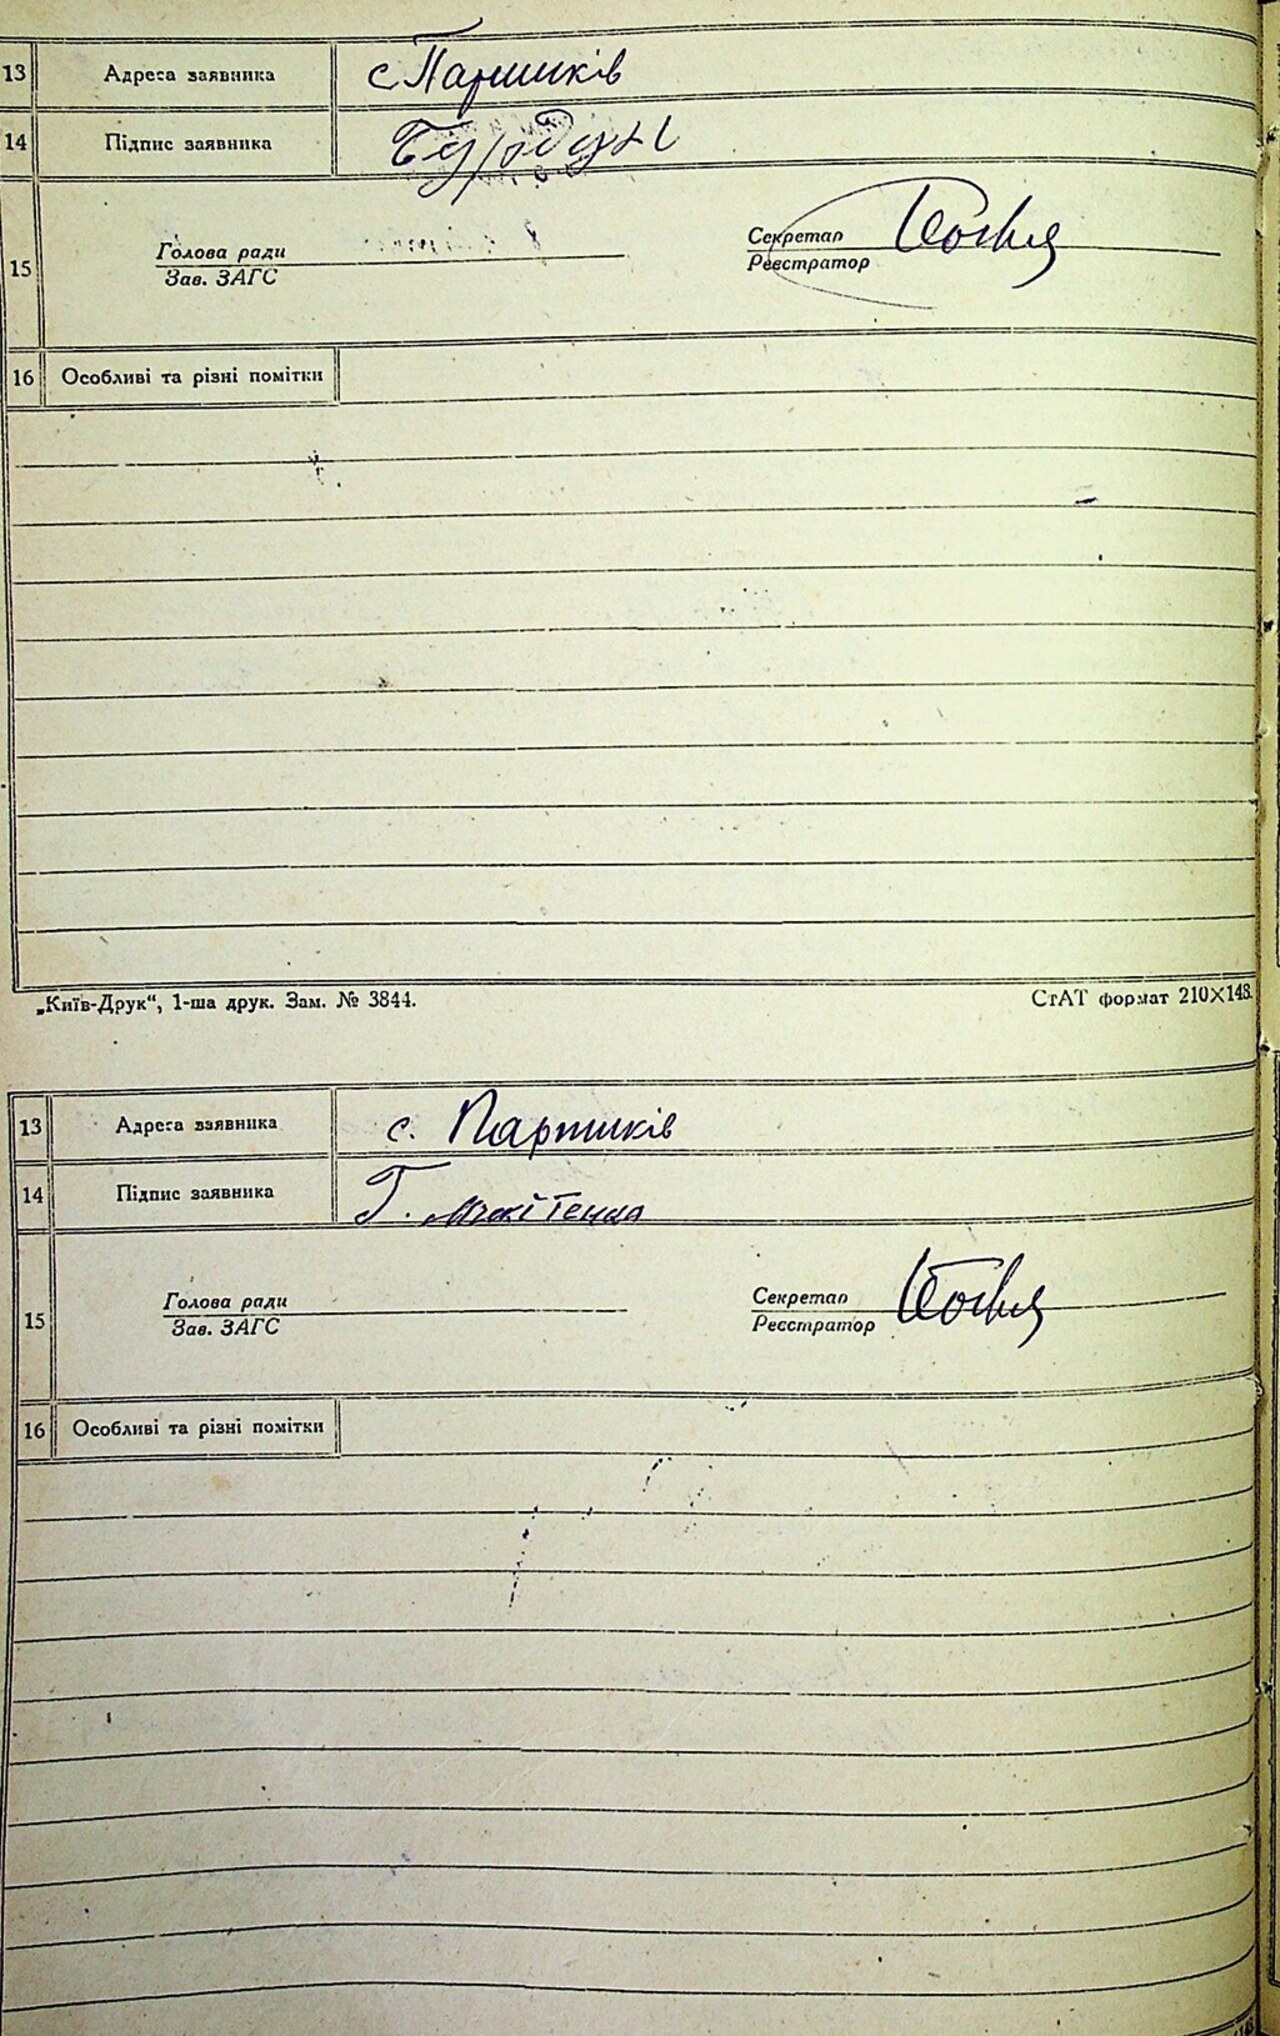 13 Адреса заявника с. Паришків
14 Підпис заявника
Секретар
Голова ради
15 Реєстратор
Зав. ЗАГС
16 Особливі та різні помітки
„Київ-Друк“, 1-ша друк. Зам. № 3844. СтАТ формат 210×148.
13 Адреса заявника с. Паришків
14 Підпис заявника Г.
Секретар
Голова ради
15 Реєстратор
Зав. ЗАГС
16 Особливі та різні помітки